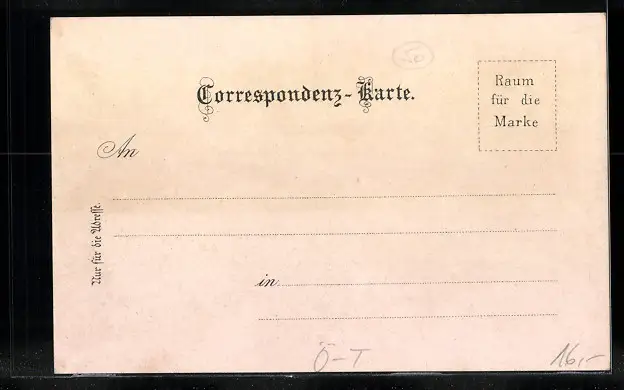 50
Correspondenz-Karte.
Raum
für die
Marke
An
Nur für die Adresse.
in
Ö-T
16,-